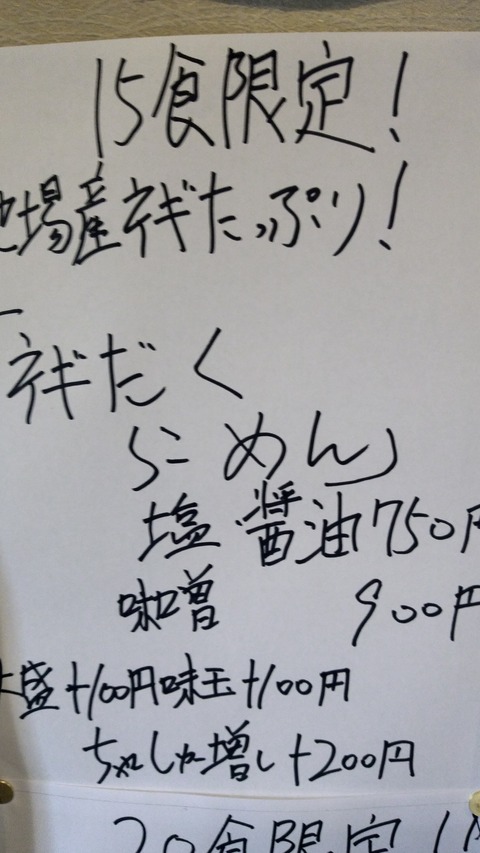 15食限定!
地場産ネギたっぷり!
ネギだく
らーめん
塩 醤油750円
味噌 900円
大盛+100円味玉+100円
ちゃしゅ増し+200円
20食限定!